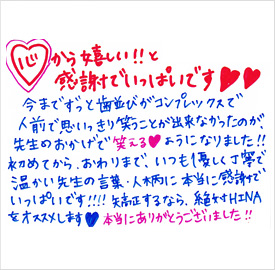 心から嬉しい!!と
感謝でいっぱいです♥♥
今までずっと歯並びがコンプレックスで
人前で思いっきり笑うことが出来なかったのが、
先生のおかげで笑える♥ようになりました!!
初めてから、おわりまで、いつも優しく丁寧で
温かい先生の言葉・人柄に本当に感謝で
いっぱいです!!!! 矯正するなら、絶対HINA
をオススメします♥本当にありがとうございました!!